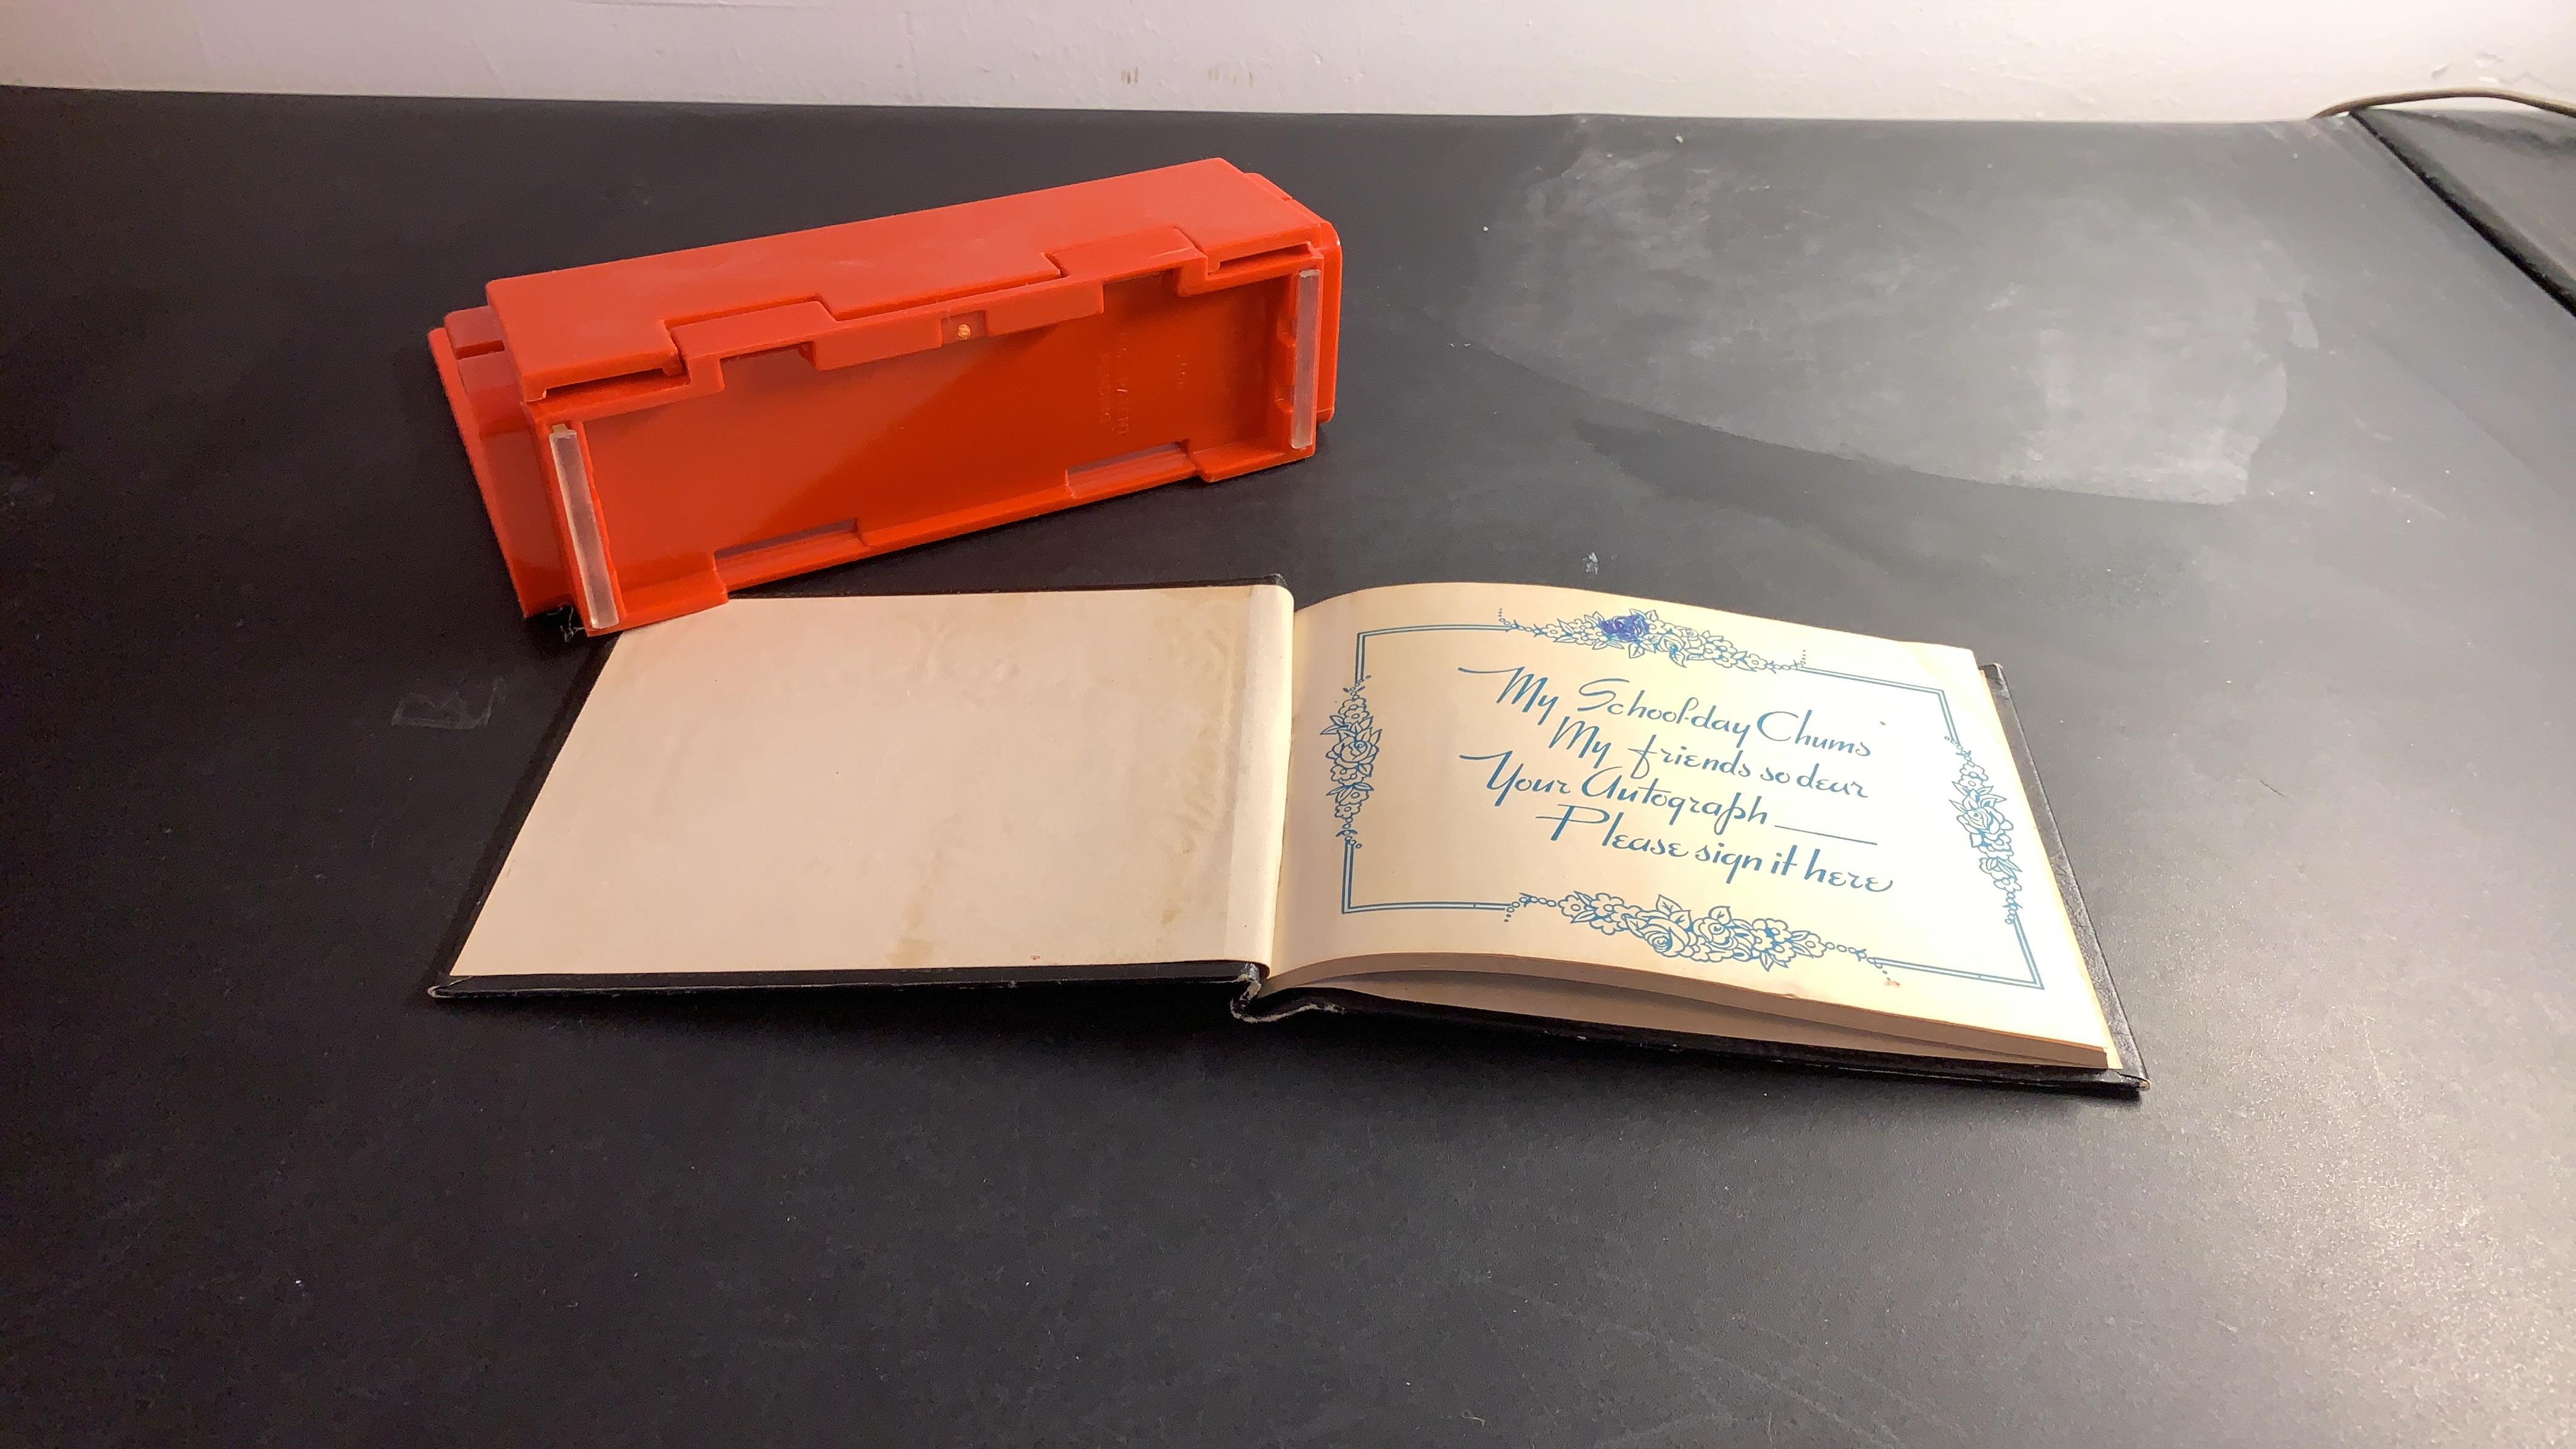 My School-day Chums
My friends so dear
Your Autograph ____
Please sign it here